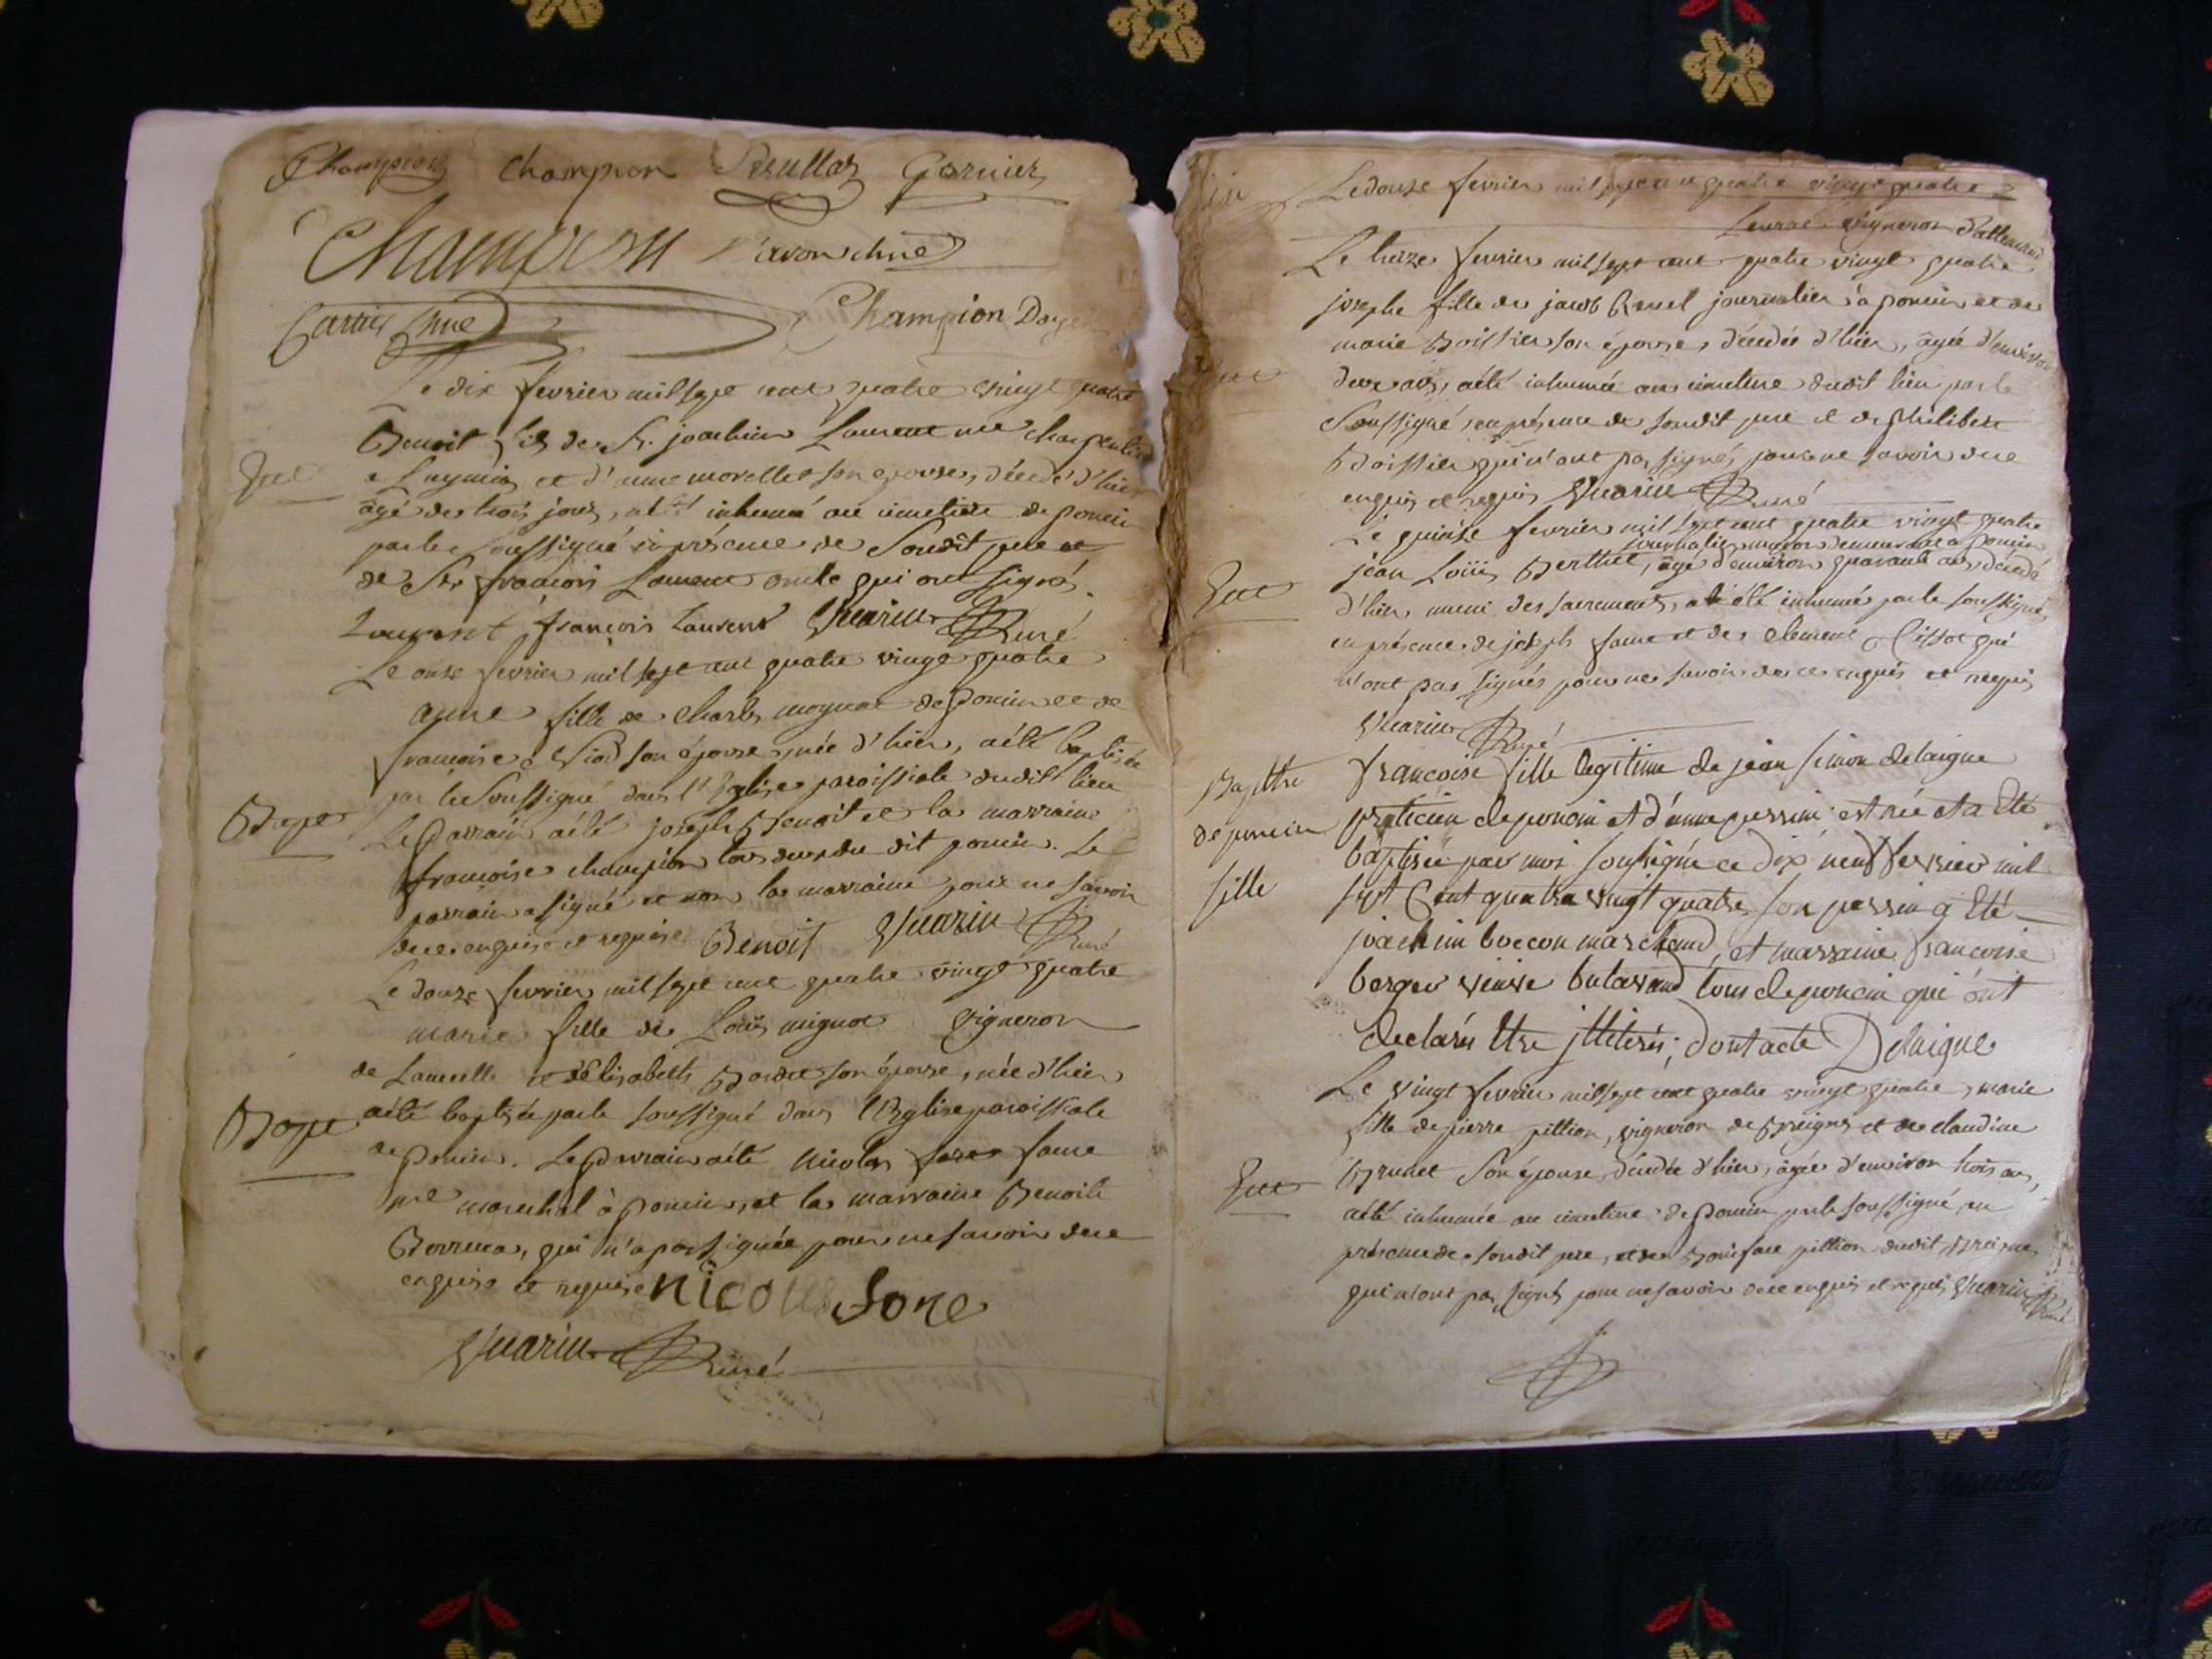 Champion Champion Perullaz Garnier
Champion
Champion
Le dix fevrier mil sept cent quatre vingt quatre
Benoit fils de Sr. joachim Laurent me charpentier
a Leyment et d'anne morellet son epouse, décédé d'hier
âgé de trois jours, a été inhumé au cimetiere de poncin
par le soussigné en présence de Sondit pere et
de Sr. françois Laurent oncle qui ont signés.
Laurent françois Laurent Guarin Curé
Le onze fevrier mil sept cent quatre vingt quatre
anne fille de Charles moynat de poncin et de
francoise son épouse, née d'hier, a été baptisée
par le Soussigné dans l'Eglise paroissiale dudit lieu
Bapt Le parrain a été joseph Benoit et la marraine
francoise champion tous deux du dit poncin. Le
parrain a signé et non la marraine pour ne savoir
de ce enquise et requise Benoit Guarin Curé
Le douze fevrier mil sept cent quatre vingt quatre
marie fille de Loüis mignot vigneron
de et d'Elisabeth son épouse, née d'hier
Bapt a été baptisée par le soussigné dans l'Eglise paroissiale
de Poncin. Le parrain a été nicolas fore
me marechal à Poncin, et la marraine Benoite
qui n'a pas signée pour ne savoir de ce
enquise et requise nicolas fore
Guarin Curé
Le douze fevrier mil sept cent quatre vingt quatre
vigneron
Le treize fevrier mil sept cent quatre vingt quatre
josephe fille de jacob journalier à poncin et de
marie Boissier son épouse, décédée d'hier, âgée d'environ
deux ans, a été inhumée au cimetiere dudit lieu par le
Soussigné en présence de sondit pere et de philibert
Boissier qui n'ont pas signés pour ne savoir de ce
enquis et requis Guarin Curé
Le quinze fevrier mil sept cent quatre vingt quatre
journalier maçon demeurant a poncin
jean Loüis Berthet, âgé d'environ quarante ans, décédé
d'hier muni des sacrements, a été inhumé par le soussigné
en présence de joseph et de Clement qui
n'ont pas signés pour ne savoir de ce enquis et requis
Guarin Curé
Baptême françoise fille legitime de jean simon delaigue
de poncin praticien de poncin et d'anne perrin est née et a Eté
baptisée par moi soussigné ce dix neuf fevrier mil
fille sept Cent quatre vingt quatre son parrin a Eté
joachim boccon marchand, et marraine francoise
berger veuve tous de poncin qui ont
declarés Etre jlliterés; dont acte Delaigue
Le vingt fevrier mil sept cent quatre vingt quatre, marie
fille de pierre pittion, vigneron de Breigne et de claudine
Brunet son épouse, décédée d'hier, âgée d'environ trois ans,
a été inhumée au cimetiere de Poncin par le soussigné, en
présence de sondit pere, et de Boniface pittion dudit Breigne
qui n'ont pas signés pour ne savoir de ce enquis et requis Guarin Curé